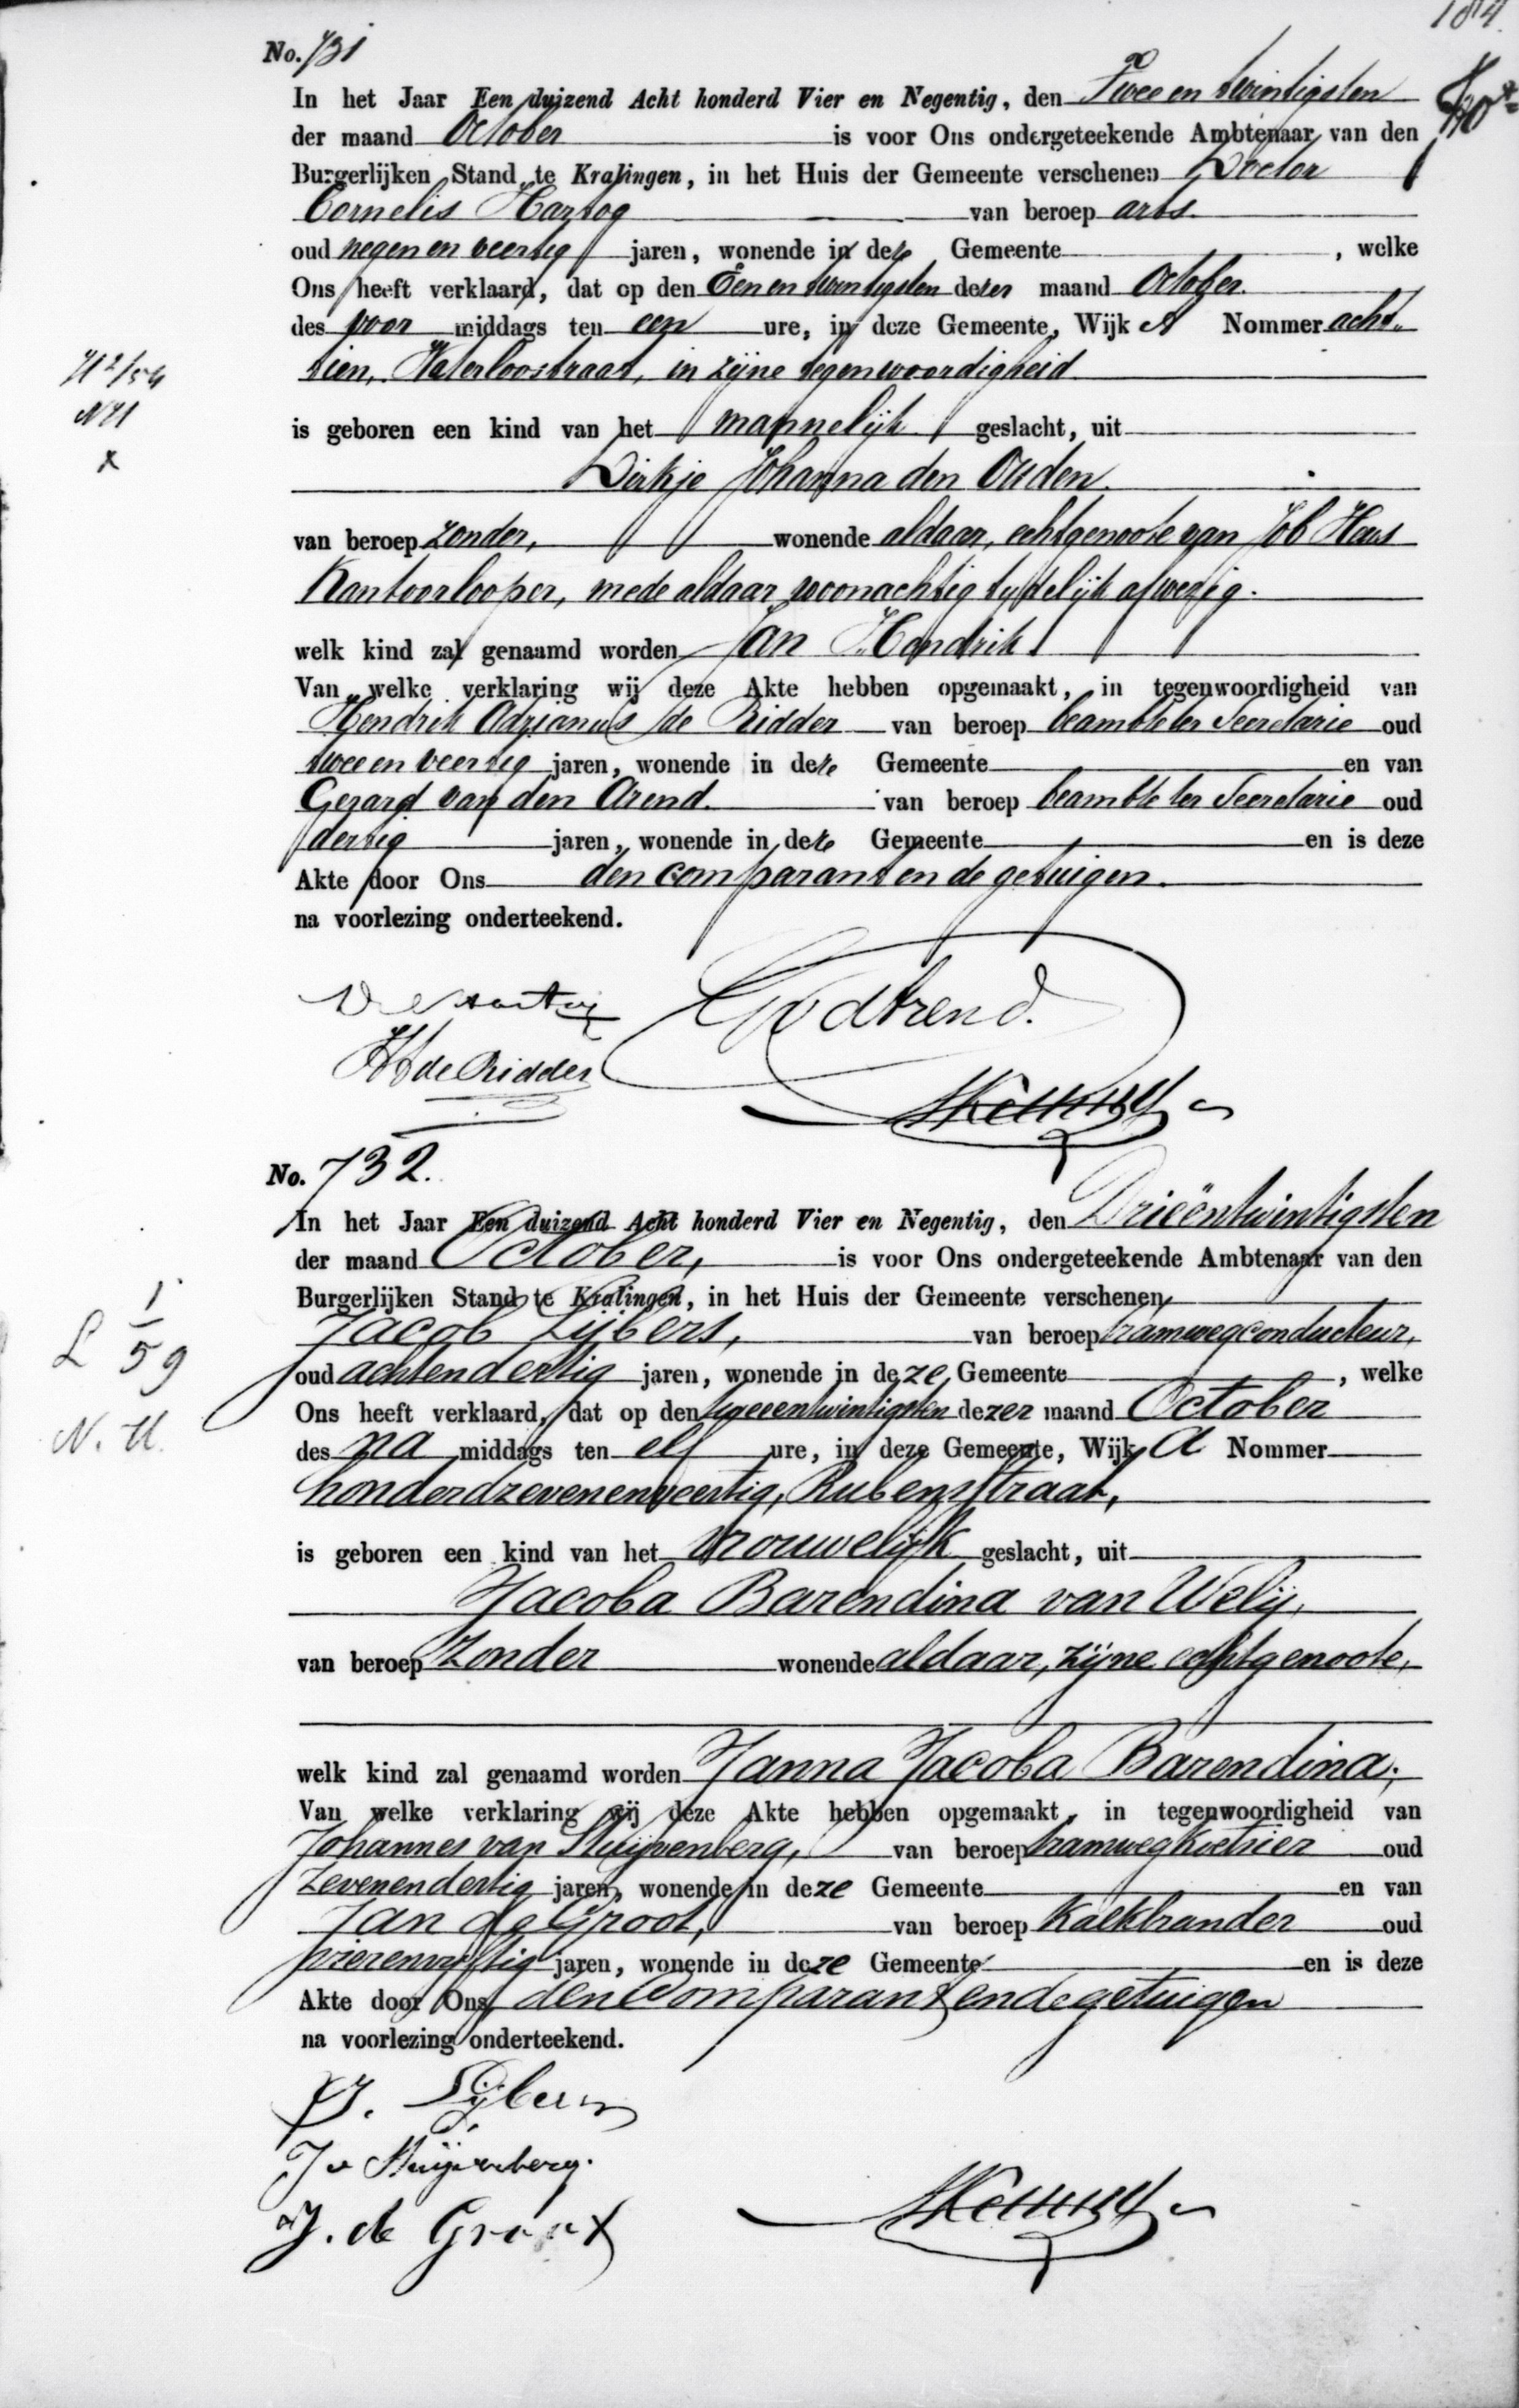 184.
No. 731
In het Jaar Een duizend Acht honderd Vier en Negentig, den Twee en twintigsten
der maand October is voor Ons ondergeteekende Ambtenaar van den
Burgerlijken Stand te Kralingen, in het Huis der Gemeente verschenen Doctor
Cornelis Hartog van beroep arts.
oud negen en veertig jaren, wonende in deze Gemeente, welke
Ons heeft verklaard, dat op den Een en twintigsten dezer maand October
des voor middags ten een ure, in deze Gemeente, Wijk A Nommer acht-
tien, Waterloostraat, in zijne tegenwoordigheid
is geboren een kind van het mannelijk geslacht, uit
Dirkje Johanna den Ouden.
van beroep zonder, wonende aldaar, echtgenoote van Job
Kantoorlooper, mede aldaar woonachtig tijdelijk afwezig.
welk kind zal genaamd worden Jan Hendrik
Van welke verklaring wij deze Akte hebben opgemaakt, in tegenwoordigheid van
Hendrik Adrianus de Ridder van beroep beambte ter Secretarie oud
twee en veertig jaren, wonende in deze Gemeente en van
Gerard van den Arend. van beroep beambte ter Secretarie oud
dertig jaren, wonende in deze Gemeente en is deze
Akte door Ons den comparant en de getuigen.
na voorlezing onderteekend.
GvdArend.
HAde Ridder
No. 732.
In het Jaar Een duizend Acht honderd Vier en Negentig, den Drieëntwintigsten
der maand October, is voor Ons ondergeteekende Ambtenaar van den
Burgerlijken Stand te Kralingen, in het Huis der Gemeente verschenen
Jacob Lijbers, van beroep tramwegconducteur,
oud achtendertig jaren, wonende in deze Gemeente, welke
Ons heeft verklaard, dat op den tweeentwintigsten dezer maand October
des na middags ten elf ure, in deze Gemeente, Wijk A Nommer
honderdzevenenveertig, Rubensstraat,
is geboren een kind van het vrouwelijk geslacht, uit
Jacoba Barendina van Welij,
van beroep zonder wonende aldaar, zijne echtgenoote,
welk kind zal genaamd worden Janna Jacoba Barendina.
Van welke verklaring wij deze Akte hebben opgemaakt, in tegenwoordigheid van
Johannes van Stuijvenberg, van beroep tramwegkoetsier oud
zevenendertig jaren, wonende in deze Gemeente en van
Jan de Groot, van beroep Kalkbrander oud
vierenvijftig jaren, wonende in deze Gemeente en is deze
Akte door Ons, den Comparant en de getuigen
na voorlezing onderteekend.
J. Lijbers
J v Stuijvenberg.
J. de Groot
L 1/59
N. H.